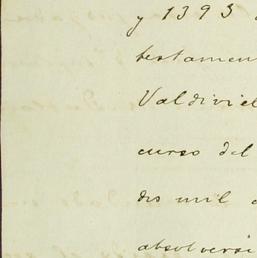 y 1393
testamen
Valdivie
curso del
dos mil
absolversi